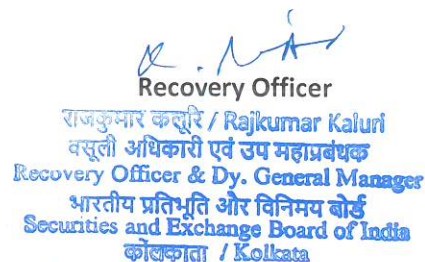 Recovery Officer
राजकुमार कलूरि / Rajkumar Kaluri
वसूली अधिकारी एवं उप महाप्रबंधक
Recovery Officer & Dy. General Manager
भारतीय प्रतिभूति और विनिमय बोर्ड
Securities and Exchange Board of India
कोलकाता / Kolkata